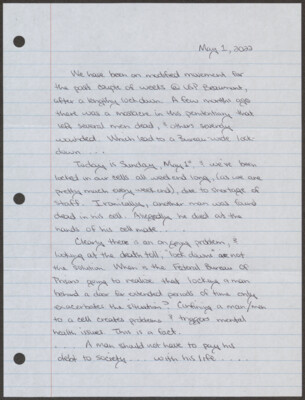 May 1, 2022
We have been on modified movement for
the past couple of weeks @ USP Beaumont,
after a lengthy lock down. A few months ago
there was a massacre in this penitentiary that
left several men dead, & others severely
wounded. Which lead to a Bureau wide lock
down....
Today is Sunday, May 1st & we've been
locked in our cells all weekend long, (as we are
pretty much every weekend), due to shortage of
staff. Ironically, another man was found
dead in his cell. Allegedly he died at the
hands of his cell mate....
Clearly there is an on going problem, &
looking at the death toll, "lock downs" are not
the solution. When is the Federal Bureau of
Prisons going to realize that locking a man
behind a door for extended periods of time only
exacerbates the situation? Confining a man/men
to a cell creates problems & triggers mental
health issues. This is a fact.
A man should not have to pay his
debt to society.... with his life....